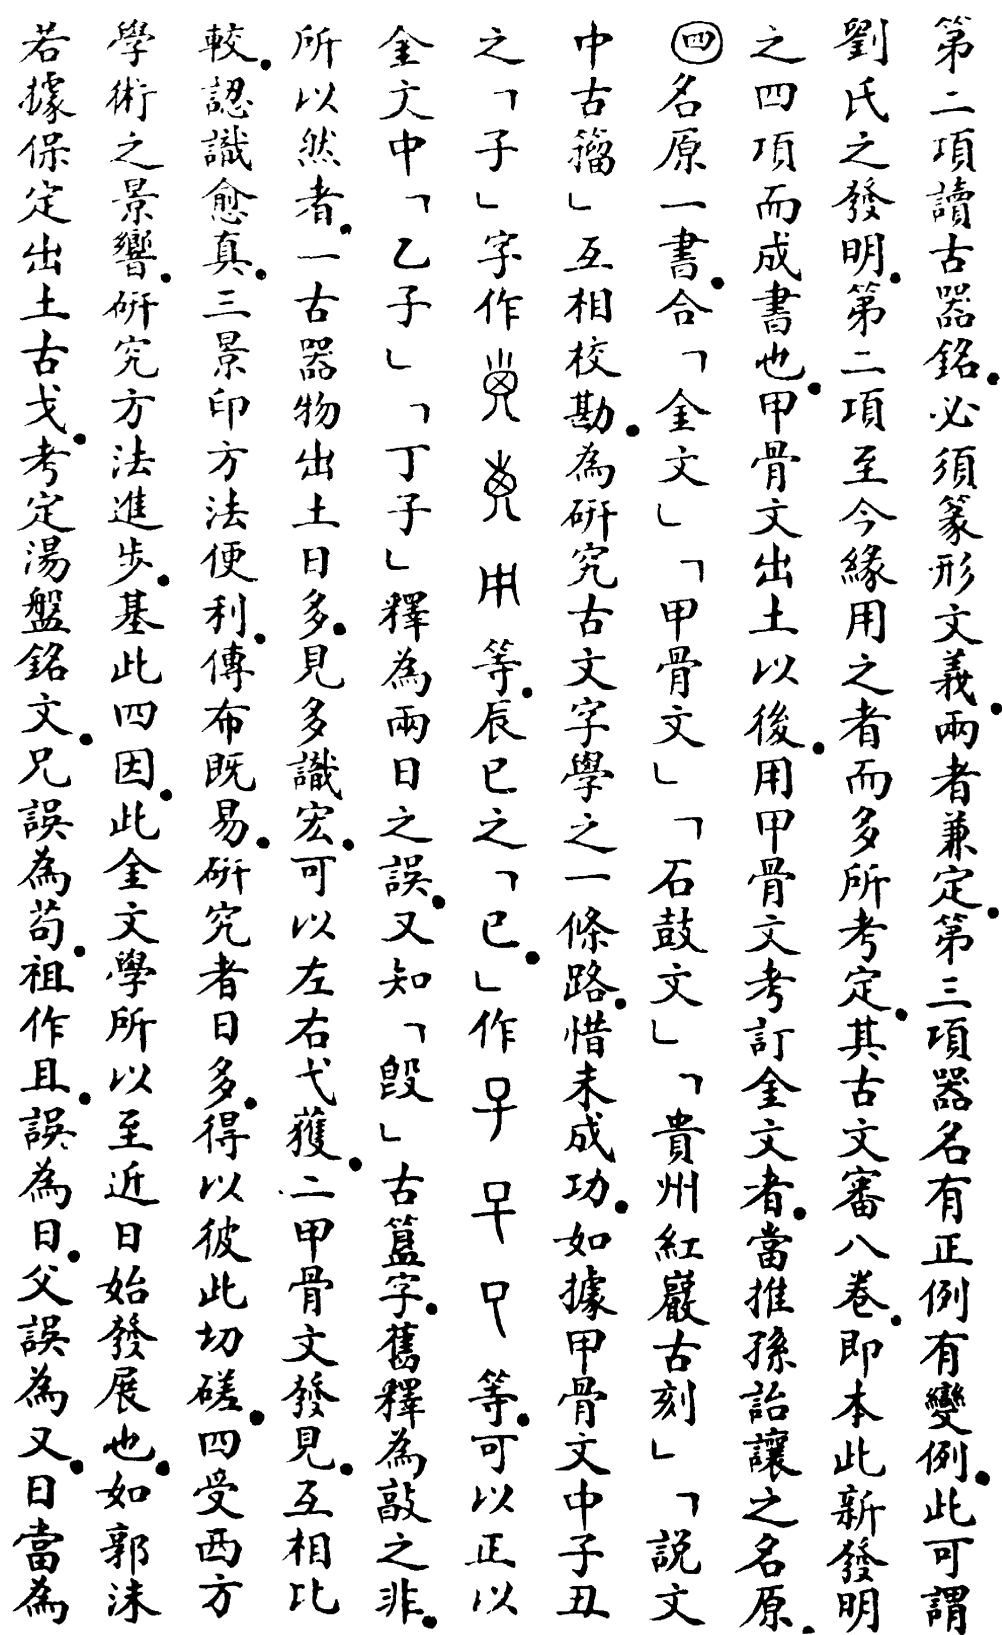 第二項讀古器銘.必須篆形文義.兩者兼定.第三項器名有正例有變例.此可謂
劉氏之發明.第二項至今緣用之者而多所考定.其古文審八卷.即本此新發明
之四項而成書也.甲骨文出土以後.用甲骨文考訂金文者.當推孫詒讓之名原.
㊃名原一書.合「金文」「甲骨文」「石鼓文」「貴州紅巖古刻」「説文
中古籀」互相校勘.為研究古文字學之一條路.惜未成功.如據甲骨文中子丑
之「子」字作等.辰巳之「巳.」作等.可以正以
金文中「乙子」「丁子」釋為兩日之誤.又知「㲃」古簋字.舊釋為敲之非.
所以然者.一古器物出土日多.見多識宏.可以左右弋獲.二甲骨文發見.互相比
較.認識愈真.三景印方法便利.傳布既易.研究者日多.得以彼此切磋.四受西方
學術之景響.研究方法進步.基此四因.此金文學所以至近日始發展也.如郭沫
若據保定出土古戈.考定湯盤銘文.兄誤為茍.祖作且.誤為日.父誤為又.日當為